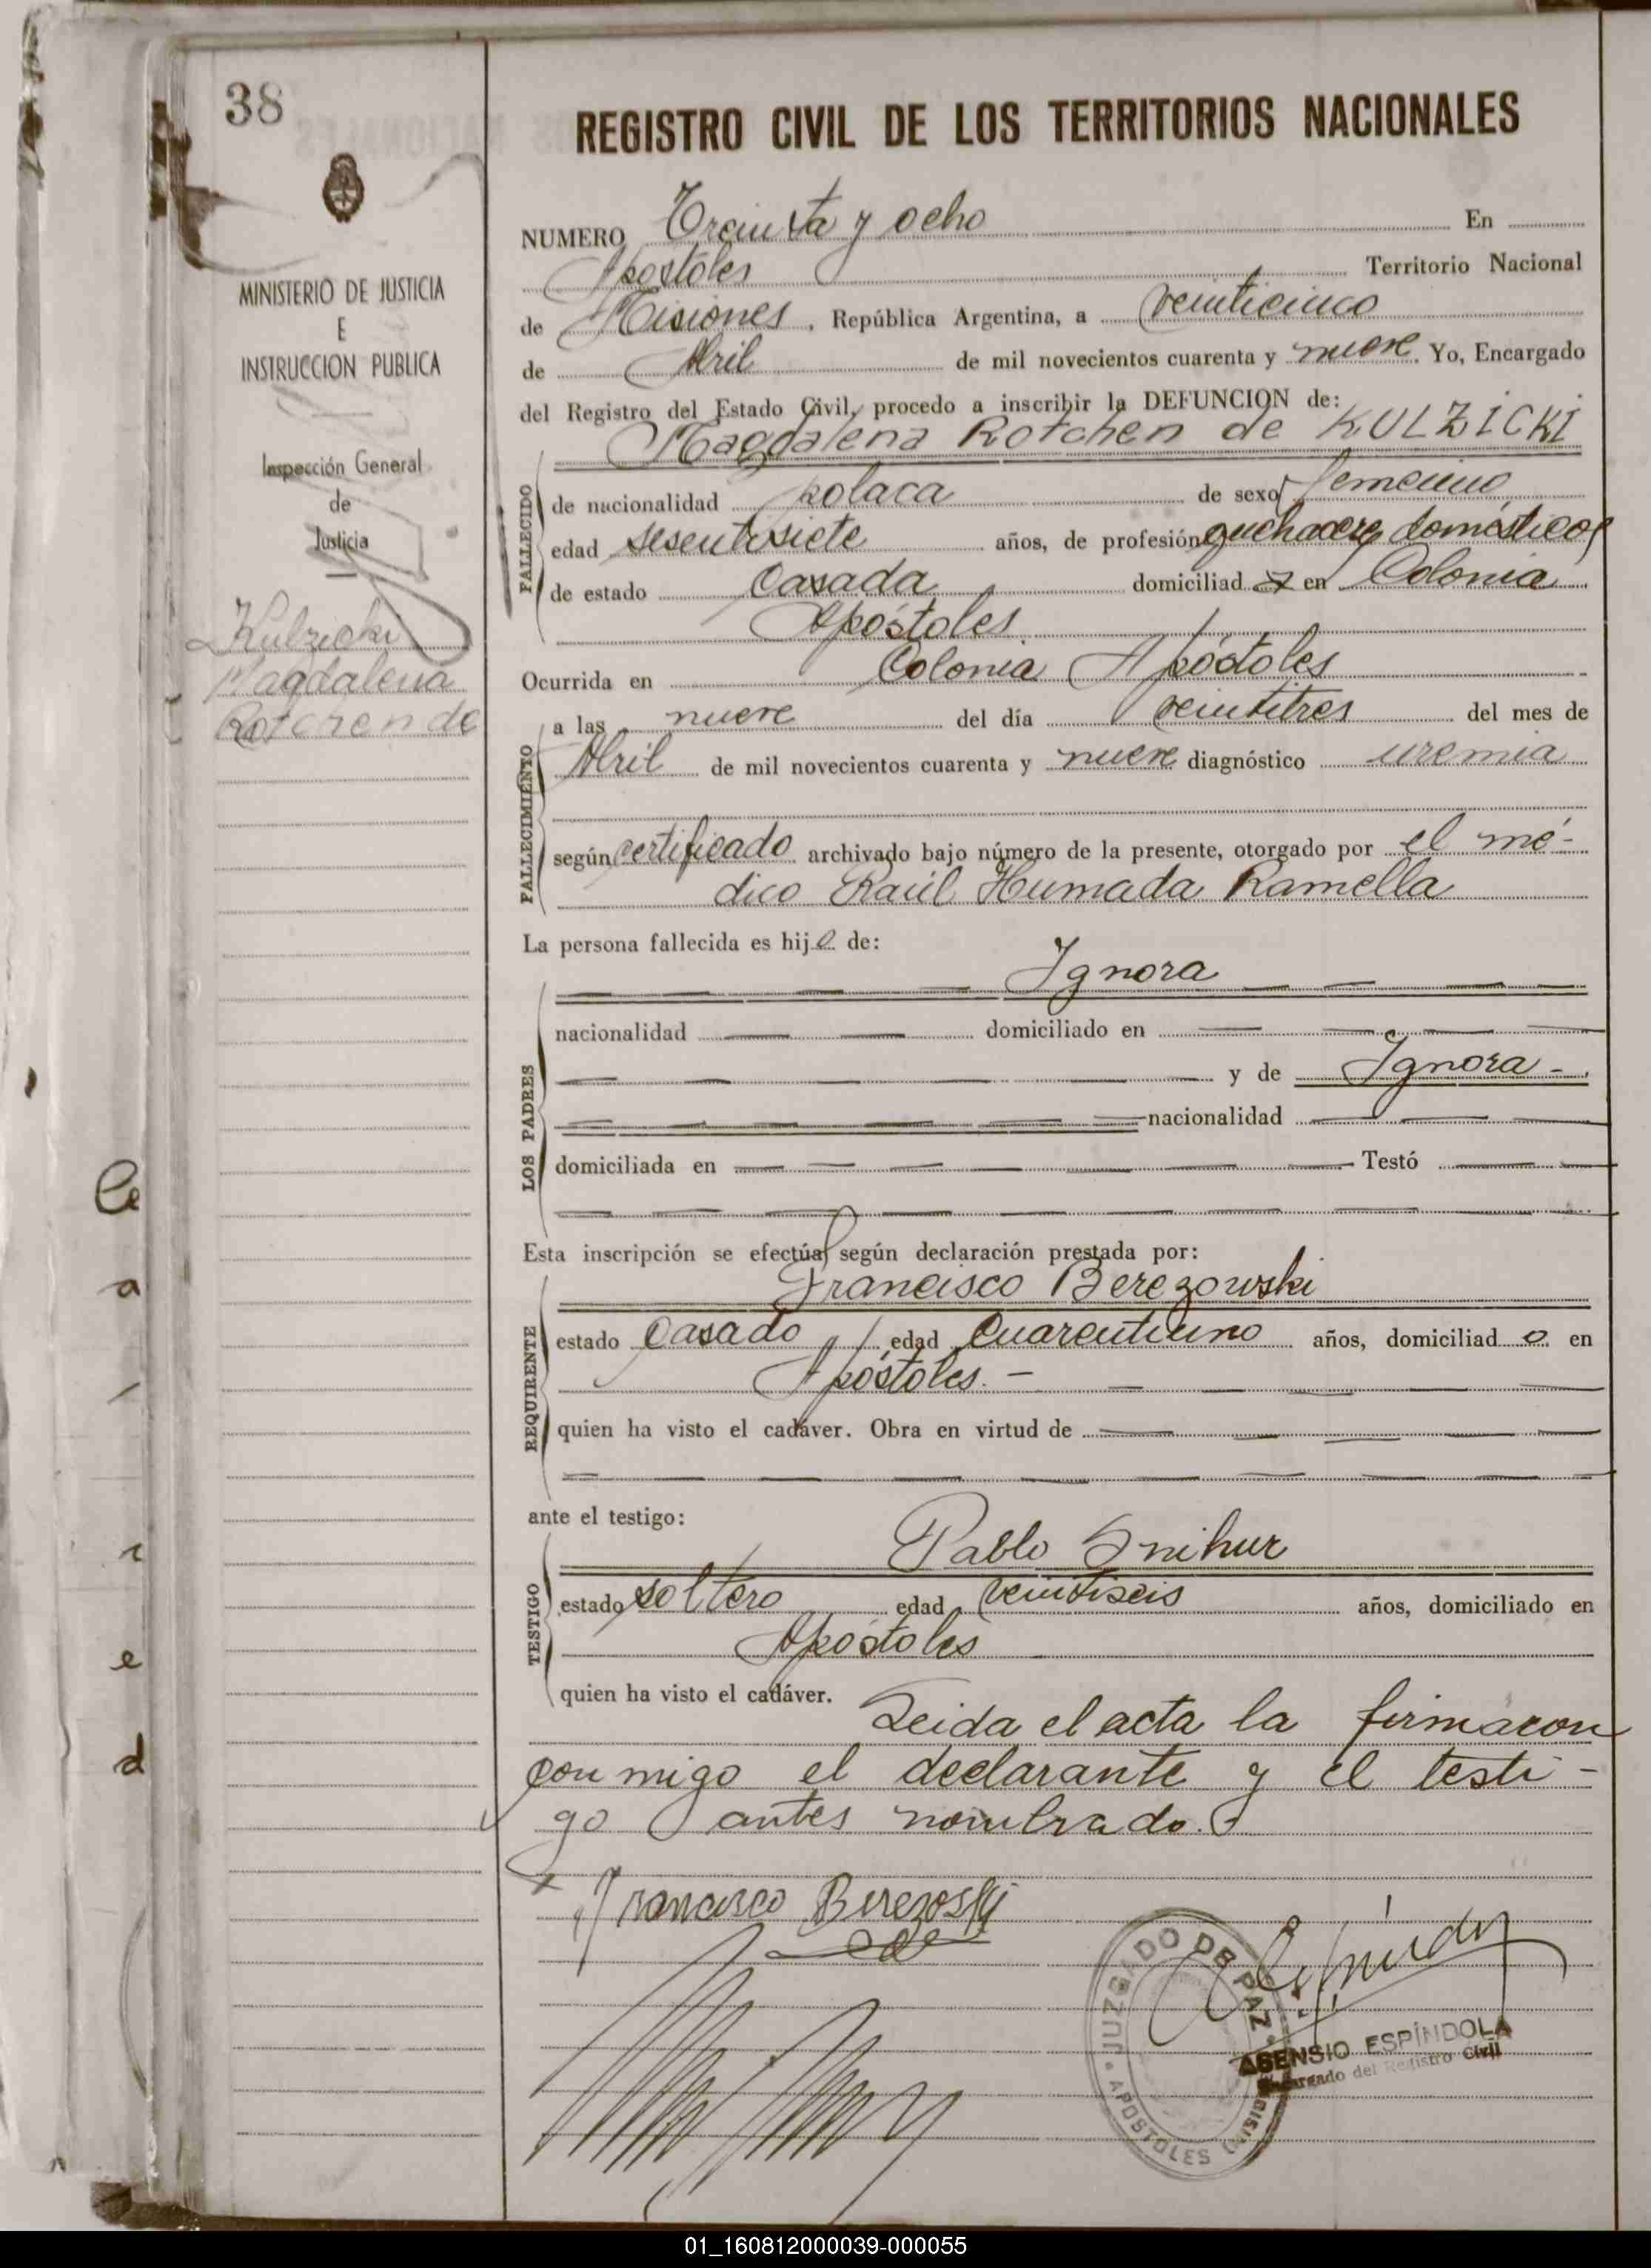 38
REGISTRO CIVIL DE LOS TERRITORIOS NACIONALES
MINISTERIO DE JUSTICIA
E
INSTRUCCION PUBLICA
Inspección General
de
Justicia
Kulzicki
Magdalena
Rotchen de
NUMERO Treinta y ocho En
Apostoles Territorio Nacional
de Misiones, República Argentina, a veinticinco
de Abril de mil novecientos cuarenta y nueve. Yo, Encargado
del Registro del Estado Civil, procedo a inscribir la DEFUNCION de:
Magdalena Rotchen de KULZICKI
FALLECIDO
de nacionalidad polaca de sexo femenino
edad sesentisiete años, de profesión quehaceres domésticos
de estado casada domiciliad a en Colonia
Apóstoles.
Ocurrida en Colonia Apóstoles
FALLECIMIENTO
a las nueve del día veintitres del mes de
Abril de mil novecientos cuarenta y nueve diagnóstico uremia
según certificado archivado bajo número de la presente, otorgado por el mé-
dico Raúl Humada Ramella
La persona fallecida es hija de:
LOS PADRES
Ignora
nacionalidad domiciliado en
y de Ignora
nacionalidad
domiciliada en Testó
Esta inscripción se efectúa según declaración prestada por:
Francisco Berezowski
REQUIRENTE
estado casado edad cuarentiuno años, domiciliad o en
Apóstoles.-
quien ha visto el cadáver. Obra en virtud de
ante el testigo:
Pablo Snihur
TESTIGO
estado soltero edad veintiseis años, domiciliado en
Apóstoles
quien ha visto el cadáver. Leida el acta la firmaron
conmigo el declarante y el testi-
go antes nombrado.
Francisco Berezoski
JUZGADO DE PAZ
APOSTOLES
ASENSIO ESPÍNDOLA
Encargado del Registro Civil
01_160812000039-000055